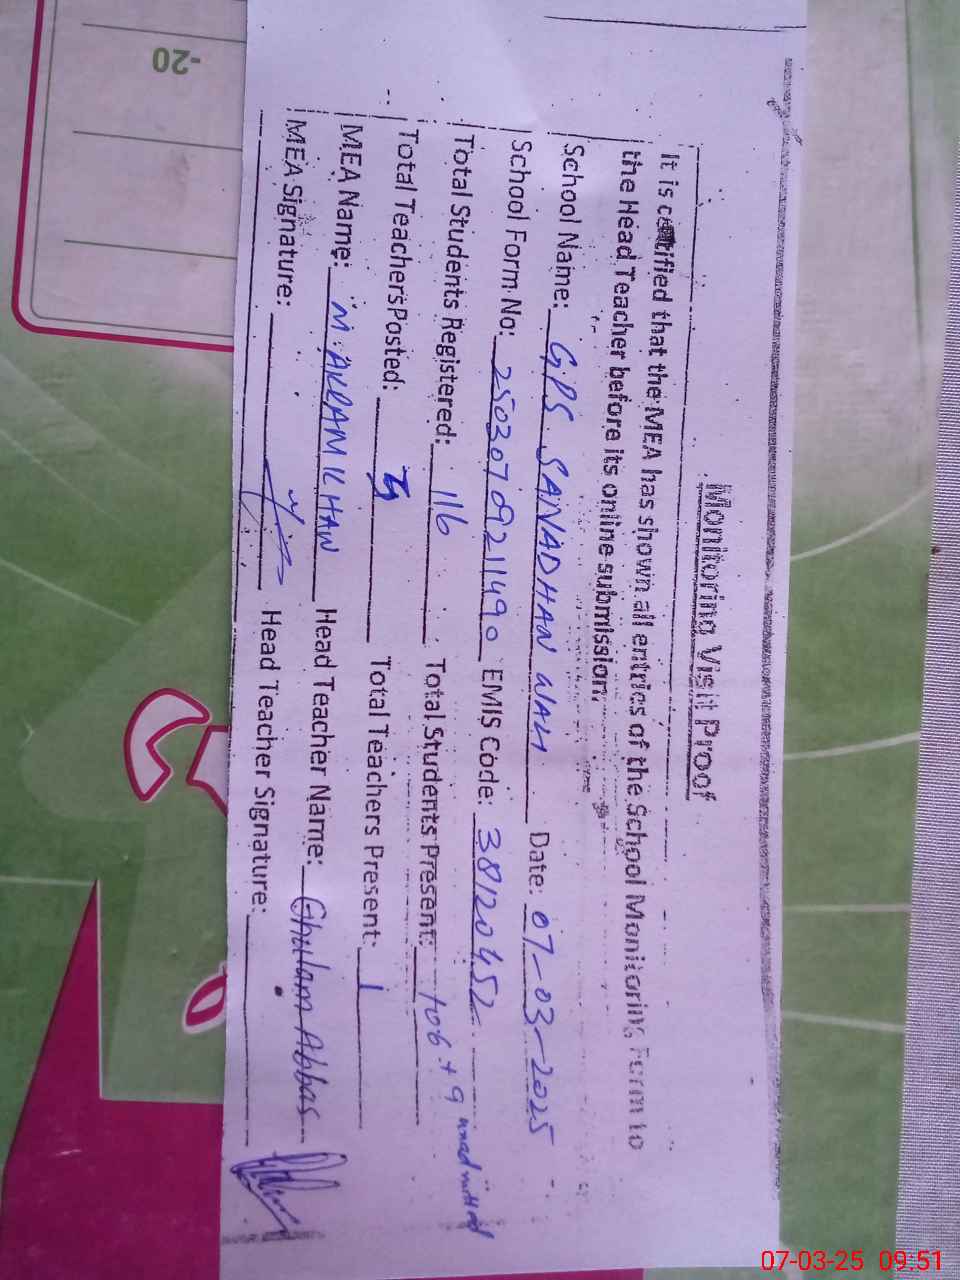 Monitoring Visit Proof
It is certified that the MEA has shown all entries of the School Monitoring Form to
the Head Teacher before its online submission.
School Name: GPS SANADHAN WALI Date: 07-03-2025
School Form No: 25030709211490 EMIS Code: 38120452
Total Students Registered: 116 Total Students Present: 106 + 9 unadmitted
Total Teachers Posted: Total Teachers Present: 1
MEA Name: M. AKRAM KHAN Head Teacher Name: Ghulam Abbas
MEA Signature: Head Teacher Signature:
-20
07-03-25 09:51